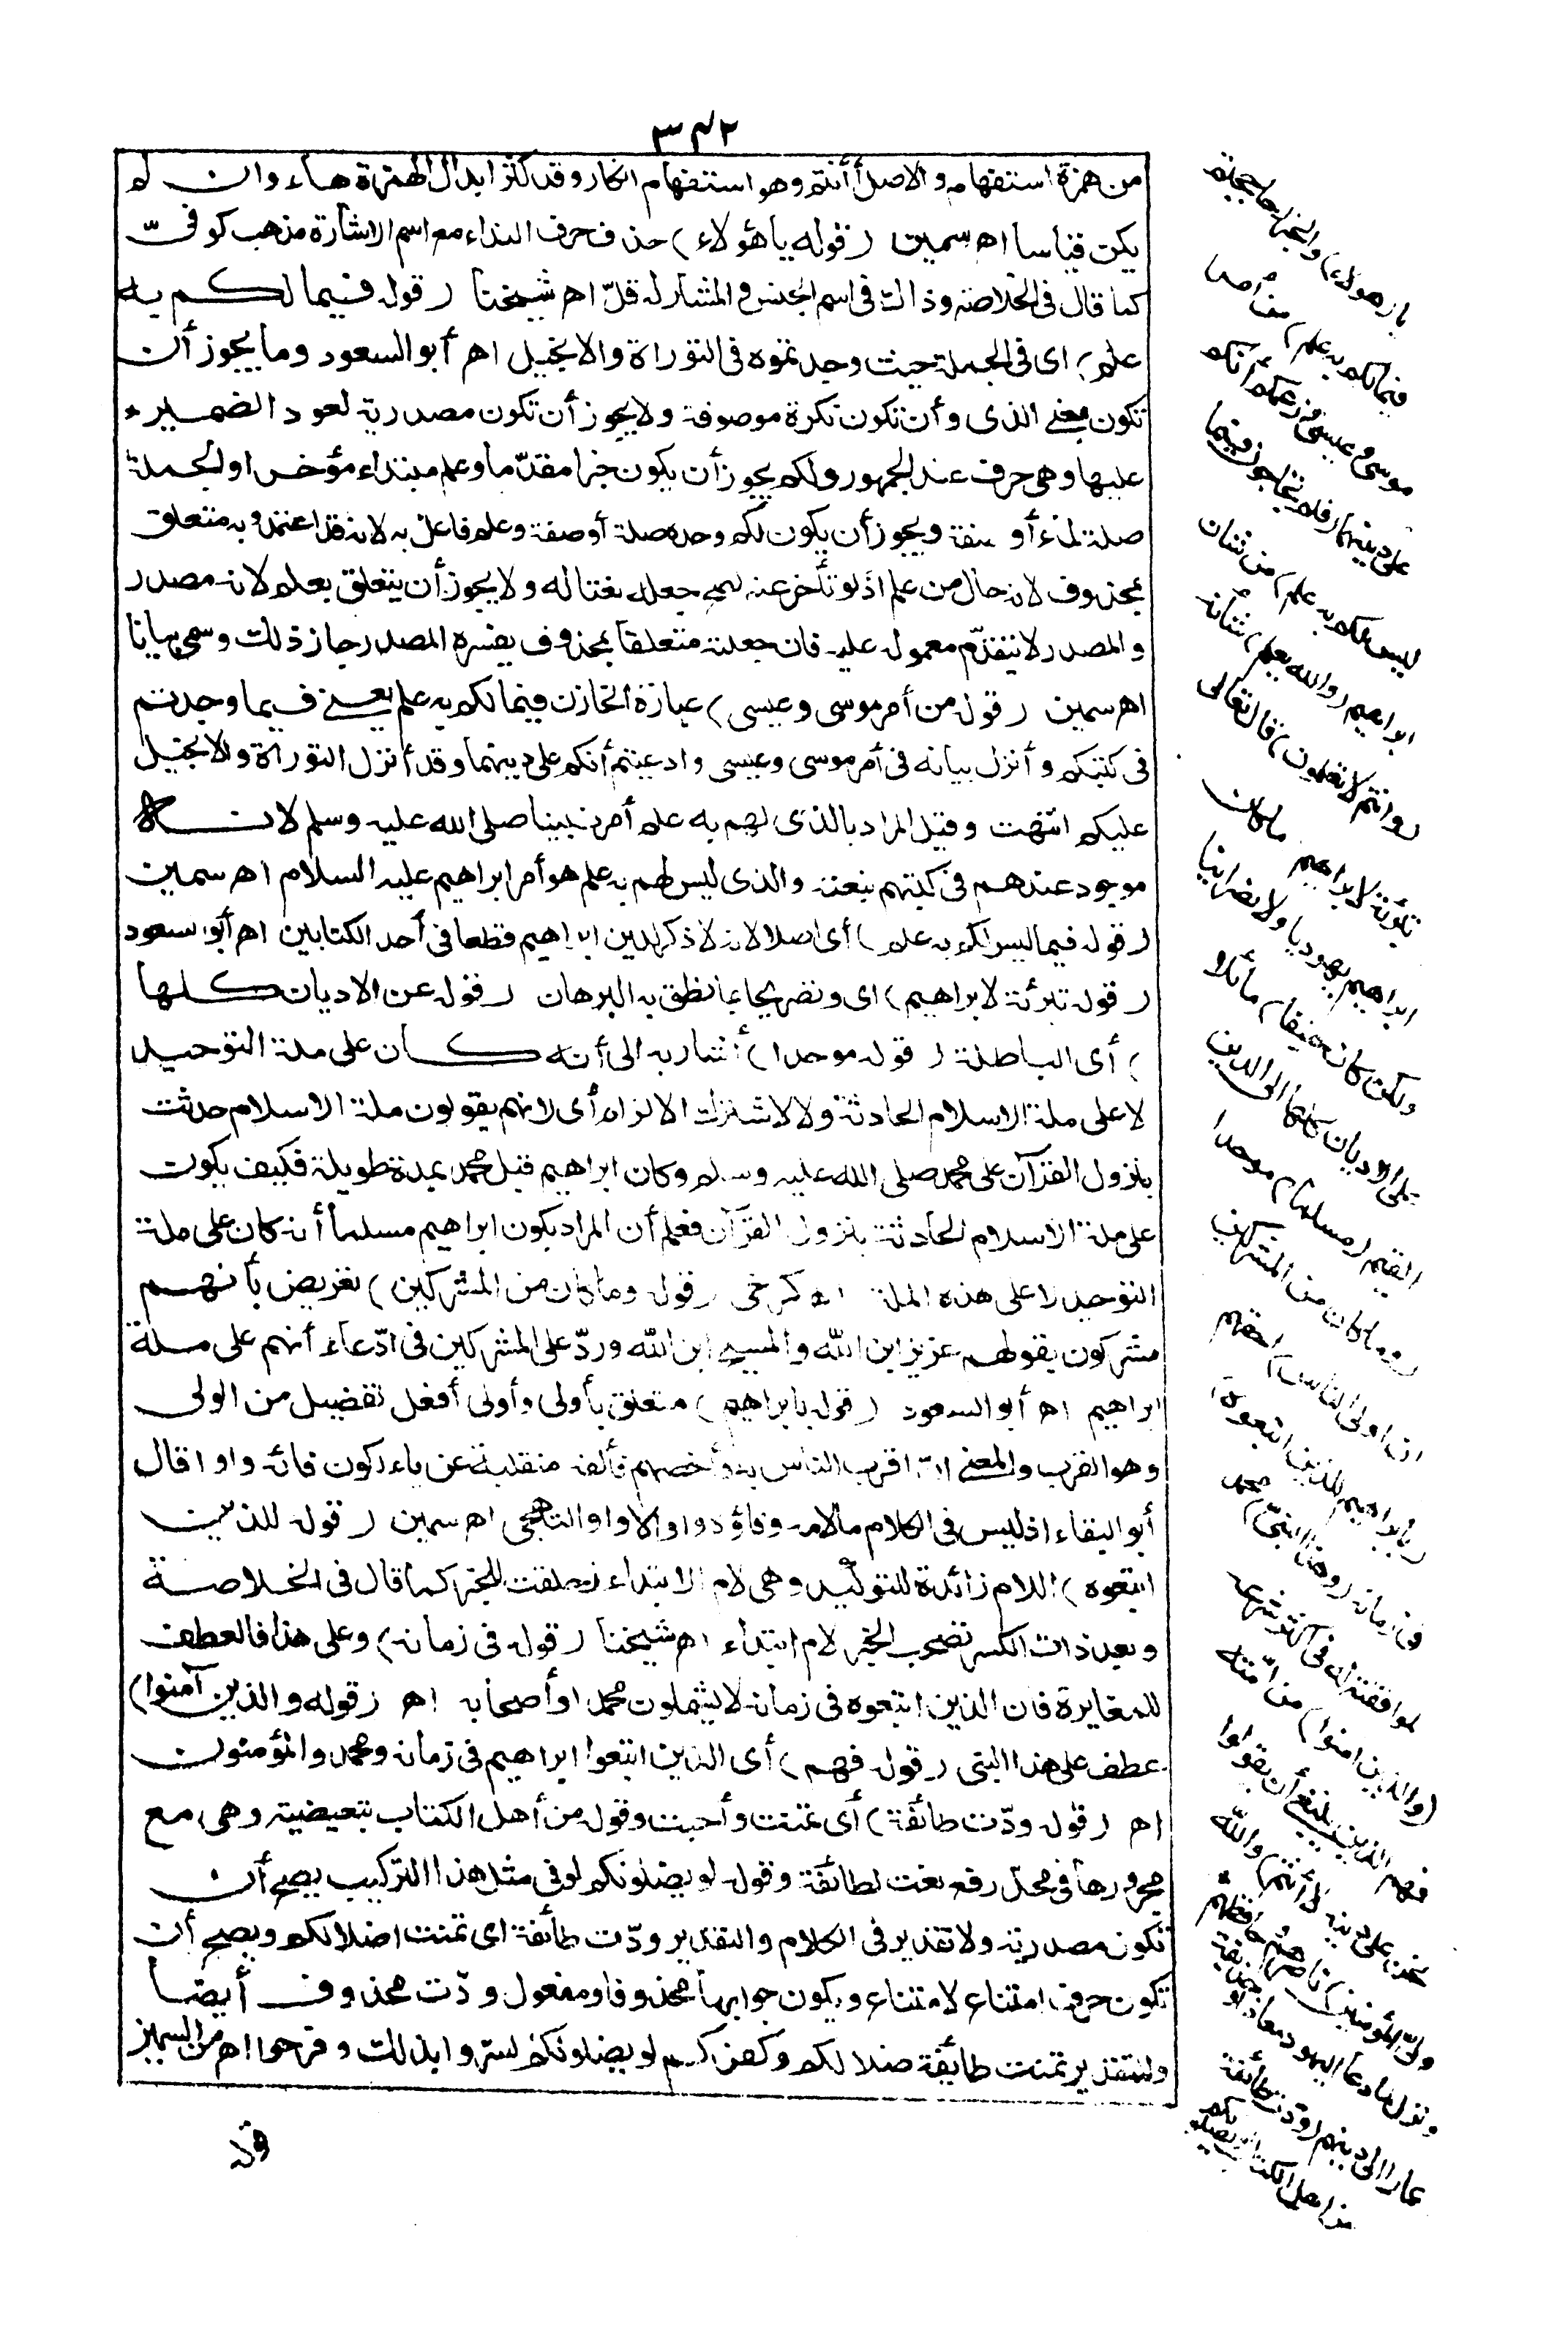 ٣٤٢
من همزة استفهام والاصل أأنتم وهو استفهام انكار وقد كثر ابدال الهمزة هاء وان لم
يكن قياسا اه سمين (قوله يا هؤلاء) حذف حرف النداء مع اسم الاشارة مذهب كوفىّ
كما قال فى الخلاصة وذاك فى اسم الجنس والمشار له قلّ اه شيخنا (قوله فيما لكم به
علم) اى فى الجملة حيث وجدتموه فى التوراة والانجيل اه أبو السعود وما يجوز أن
تكون بمعنى الذى وأن تكون نكرة موصوفة ولا يجوز أن تكون مصدرية لعود الضمير
عليها وهى حرف عند الجمهور ولكم يجوز أن يكون خبرا مقدّما وعلم مبتداء مؤخر او الجملة
صلة لما أو صفة ويجوز أن يكون لكم وحده صلة أو صفة وعلم فاعل به لانه قد اعتمد وبه متعلق
بمحذوف لانه حال من علم اذ لو تأخر عنه لصح جعله نعتا له ولا يجوز أن يتعلق بعلم لانه مصدر
والمصدر لا يتقدّم معموله عليه فان جعلته متعلقا بمحذوف يفسره المصدر جاز ذلك وسمى بيانا
اه سمين (قوله من أمر موسى وعيسى) عبارة الخازن فيما لكم به علم يعنى فيما وجدتم
فى كتبكم وأنزل بيانه فى أمر موسى وعيسى وادعيتم أنكم على دينهما وقد أنزل التوراة والانجيل
عليكم انتهت وقيل المراد بالذى لهم به علم أمر نبينا صلى الله عليه وسلم لانه
موجود عندهم فى كتبهم بنعته والذى ليس لهم به علم هو أمر ابراهيم عليه السلام اه سمين
(قوله فيما ليس لكم به علم) أى اصلا لانه لا ذكر لدين ابراهيم قطعا فى أحد الكتابين اه أبو السعود
(قوله تبرئة لابراهيم) اى وتصريحا بما نطق به البرهان (قوله عن الاديان كلها
) أى الباطلة (قوله موحدا) أشار به الى أنه كان على ملة التوحيد
لا على ملة الاسلام الحادثة والا لاشترك الالزام أى لانهم يقولون ملة الاسلام حدثت
بنزول القرآن على محمد صلى الله عليه وسلم وكان ابراهيم قبل محمد بمدة طويلة فكيف يكون
على ملة الاسلام الحادثة بنزول القرآن فعلم أن المراد بكون ابراهيم مسلما أنه كان على ملة
التوحيد لا على هذه الملة اه كرخى (قوله وما كان من المشركين) تعريض بأنهم
مشركون بقولهم عزير ابن الله والمسيح ابن الله وردّ على المشركين فى ادّعاء أنهم على ملة
ابراهيم اه أبو السعود (قوله بابراهيم) متعلق بأولى وأولى أفعل تفضيل من الولى
وهو القرب والمعنى انّ اقرب الناس به وأخصهم فألفه منقلبة عن ياء لكون فائه واوا قال
أبو البقاء اذ ليس فى الكلام ما لامه وفاؤه واو الا واو التهجى اه سمين (قوله للذين
اتبعوه) اللام زائدة للتوكيد وهى لام الابتداء زحلقت للخبر كما قال فى الخلاصة
وبعد ذات الكسر تصحب الخبر لام ابتداء اه شيخنا (قوله فى زمانه) وعلى هذا فالعطف
للمغايرة فان الذين اتبعوه فى زمانه لا يشملون محمدا وأصحابه اه (قوله والذين آمنوا)
عطف على هذا النبى (قوله فهم) أى الذين اتبعوا ابراهيم فى زمانه ومحمد والمؤمنون
اه (قوله ودّت طائفة) أى تمنت وأحبت وقوله من أهل الكتاب تبعيضية وهى مع
مجرورها فى محل رفع نعت لطائفة وقوله لو يضلونكم لو فى مثل هذا التركيب يصح أن
تكون مصدرية ولا تقدير فى الكلام والتقدير ودّت طائفة اى تمنت اضلالكم ويصح أن
تكون حرف امتناع لامتناع ويكون جوابها محذوفا ومفعول ودّت محذوف أيضا
والتقدير تمنت طائفة ضلالكم وكفركم لو يضلونكم لسرّوا بذلك وفرحوا اه من السمين
قوله
يا (هؤلاء) والخبر (حاججتم
فيما لكم به علم) من أمر
موسى وعيسى وزعمكم أنكم
على دينهما (فلم تحاجون فيما
ليس لكم به علم) من شان
ابراهيم (والله يعلم) شأنه
(وأنتم لا تعلمون) قال تعالى
تبرئة لابراهيم (ما كان
ابراهيم يهوديا ولا نصرانيا
ولكن كان حنيفا) مائلا
عن الاديان كلها الى الدين
القيم (مسلما) موحدا
(وما كان من المشركين
ان اولى الناس) احقهم
(بابراهيم للذين اتبعوه)
فى زمانه (وهذا النبىّ) محمد
لموافقته له فى اكثر شرعه
(والذين امنوا) من امّته
فهم الذين ينبغى أن يقولوا
نحن على دينه لا أنتم (والله
ولىّ المؤمنين) ناصرهم وحافظهم
ونزل لما دعا اليهود معاذا وحذيفة
وعمارا الى دينهم (ودّت طائفة
من اهل الكتاب لو يضلونكم